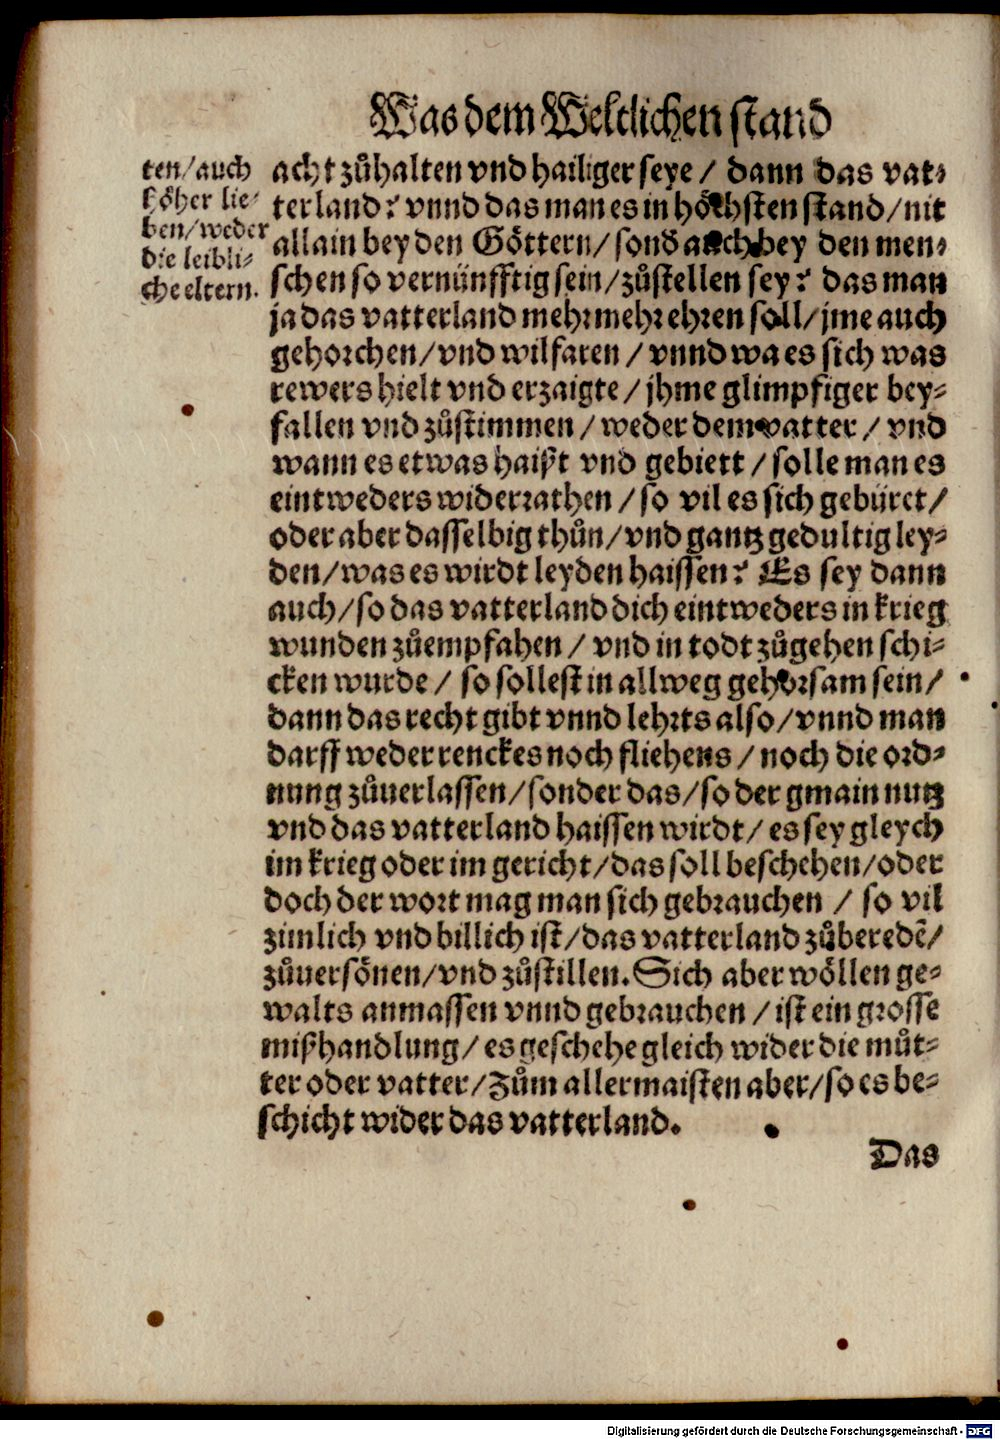 Was dem Weltlichen stand
ten/auch
höher lie-
ben/weder
die leibli-
che eltern.
acht zůhalten vnd hailiger seye / dann das vat-
terland? vnnd das man es in höchsten stand/nit
allain bey den Göttern/sond auch bey den men-
schen so vernünfftig sein/zůstellen sey? das man
ja das vatterland mehr mehr ehren soll/jme auch
gehorchen/vnd wilfaren / vnnd wa es sich was
rewers hielt vnd erzaigte / jhme glimpfiger bey-
fallen vnd zůstimmen / weder dem vatter / vnd
wann es etwas haißt vnd gebiett / solle man es
eintweders widerrathen / so vil es sich gebüret/
oder aber dasselbig thůn/vnd gantz gedultig ley-
den/was es wirdt leyden haissen? Es sey dann
auch/so das vatterland dich eintweders in krieg
wunden zůempfahen / vnd in todt zůgehen schi-
cken wurde / so sollest in allweg gehorsam sein/
dann das recht gibt vnnd lehrts also/vnnd man
darff weder renckes noch fliehens / noch die ord-
nung zůuerlassen/sonder das/so der gmain nutz
vnd das vatterland haissen wirdt/ es sey gleych
im krieg oder im gericht/das soll beschehen/oder
doch der wort mag man sich gebrauchen / so vil
zimlich vnd billich ist/das vatterland zůberedē/
zůuersönen/vnd zůstillen. Sich aber wöllen ge-
walts anmassen vnnd gebrauchen / ist ein grosse
mißhandlung/ es geschehe gleich wider die můt-
ter oder vatter/Zům allermaisten aber/so es be-
schicht wider das vatterland.
Das
Digitalisierung gefördert durch die Deutsche Forschungsgemeinschaft - DFG